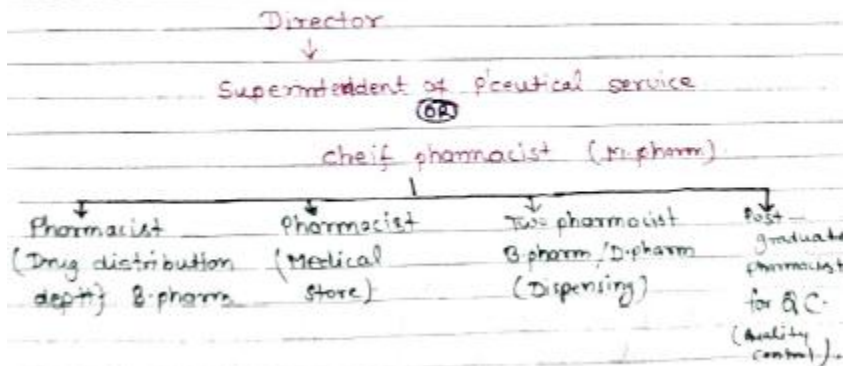 Director
Superintendent of P'ceutical service
OR
cheif pharmacist (M.pharm)
Pharmacist
(Drug distribution
deptt} B.pharm
Pharmacist
(Medical
Store)
Two pharmacist
B.pharm/D.pharm
(Dispensing)
Post
graduate
pharmacist
for QC.
(Quality
control).